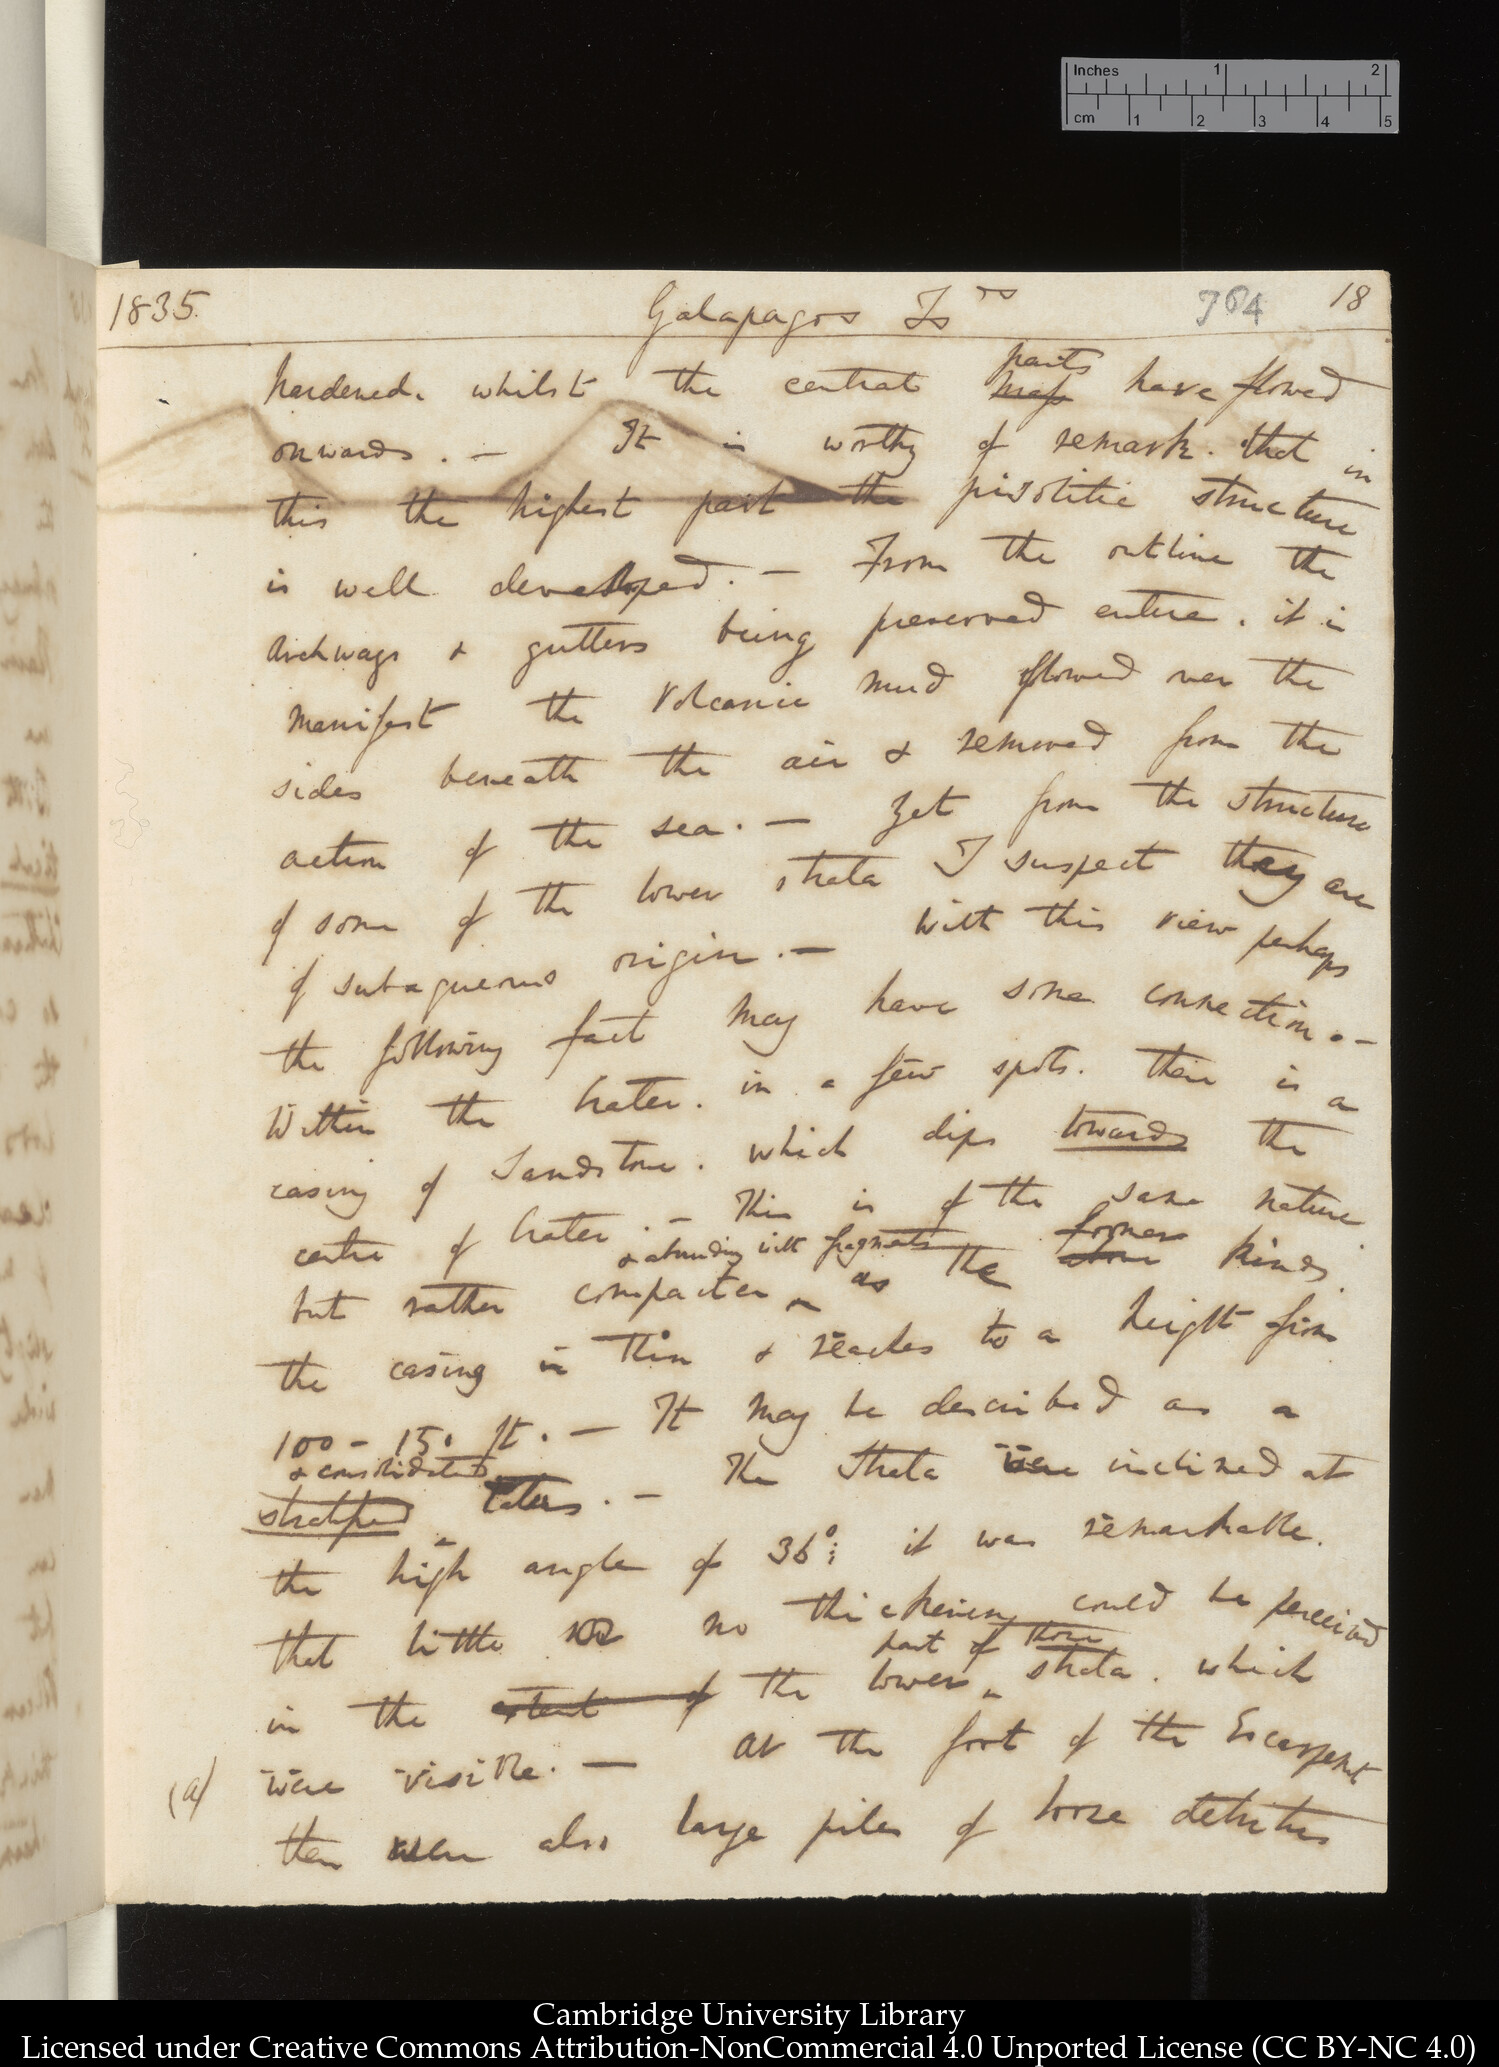 Inches 1 2
cm 1 2 3 4 5
1835. Galapagos Is 764 18
parts
hardened. whilst the central mass have flowed
onwards. — It is worthy of remark. that in
this the highest part the pisolitic structure
is well developed. — From the outline the
archways & gutters being preserved entire. it is
manifest the Volcanic mud flowed over the
sides beneath the air & removed from the
action of the sea. — Yet from the structure
of some of the lower strata I suspect they are
of subaqueous origin. — With this view perhaps
the following fact may have some connection. —
Within the Crater. in a few spots. there is a
casing of Sandstone. which dips towards the
centre of Crater. — This is of the same nature
& abounding with fragments former
but rather compacter as the above kinds.
the casing is thin & reaches to a height from
100 - 150 ft. — It may be described as a
& consolidated
stratified talus. — The Strata were inclined at
the high angle of 36°: it was remarkable.
that little or no thickening could be perceived
part of those
in the extent of the lower strata. which
were visible. — At the foot of the Escarpement
(a)
there were also large piles of loose detritus
Cambridge University Library
Licensed under Creative Commons Attribution-NonCommercial 4.0 Unported License (CC BY-NC 4.0)